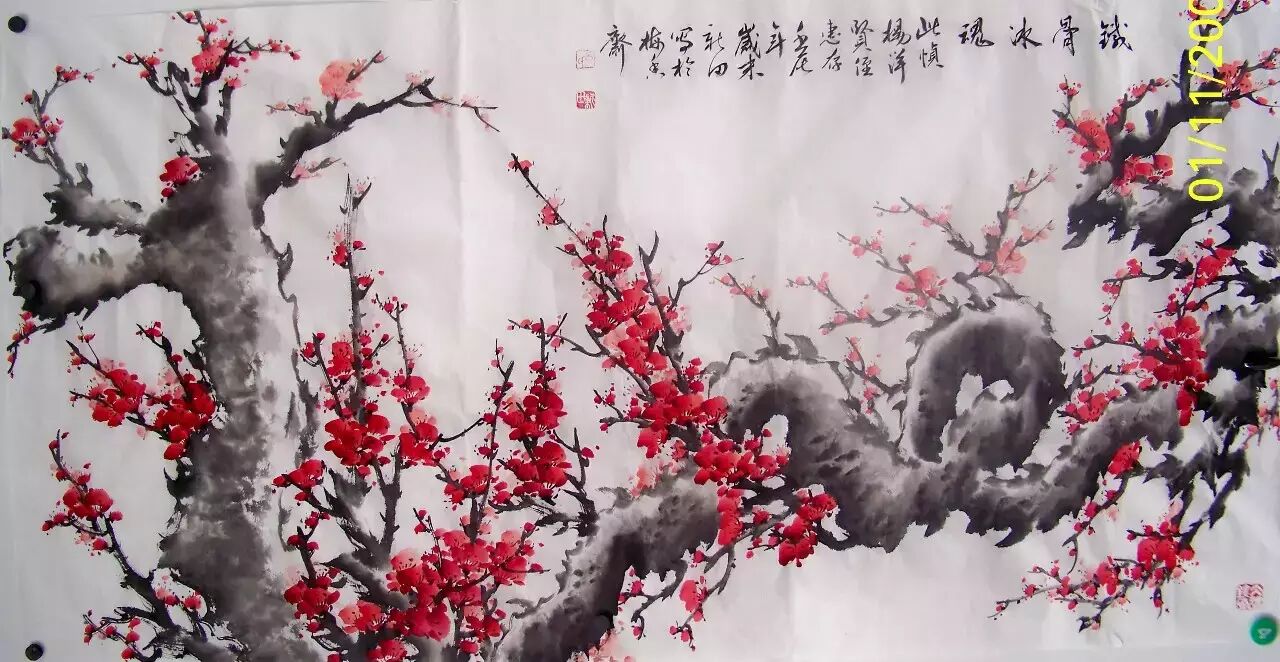 鐵骨冰魂
此幀
楊洋
賢侄
惠存
壬辰
年
歲末
新田
寫於
梅香
齋
01/11/200
4